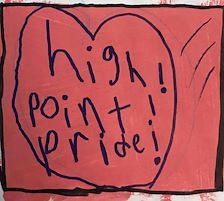 high
point!!
pride!